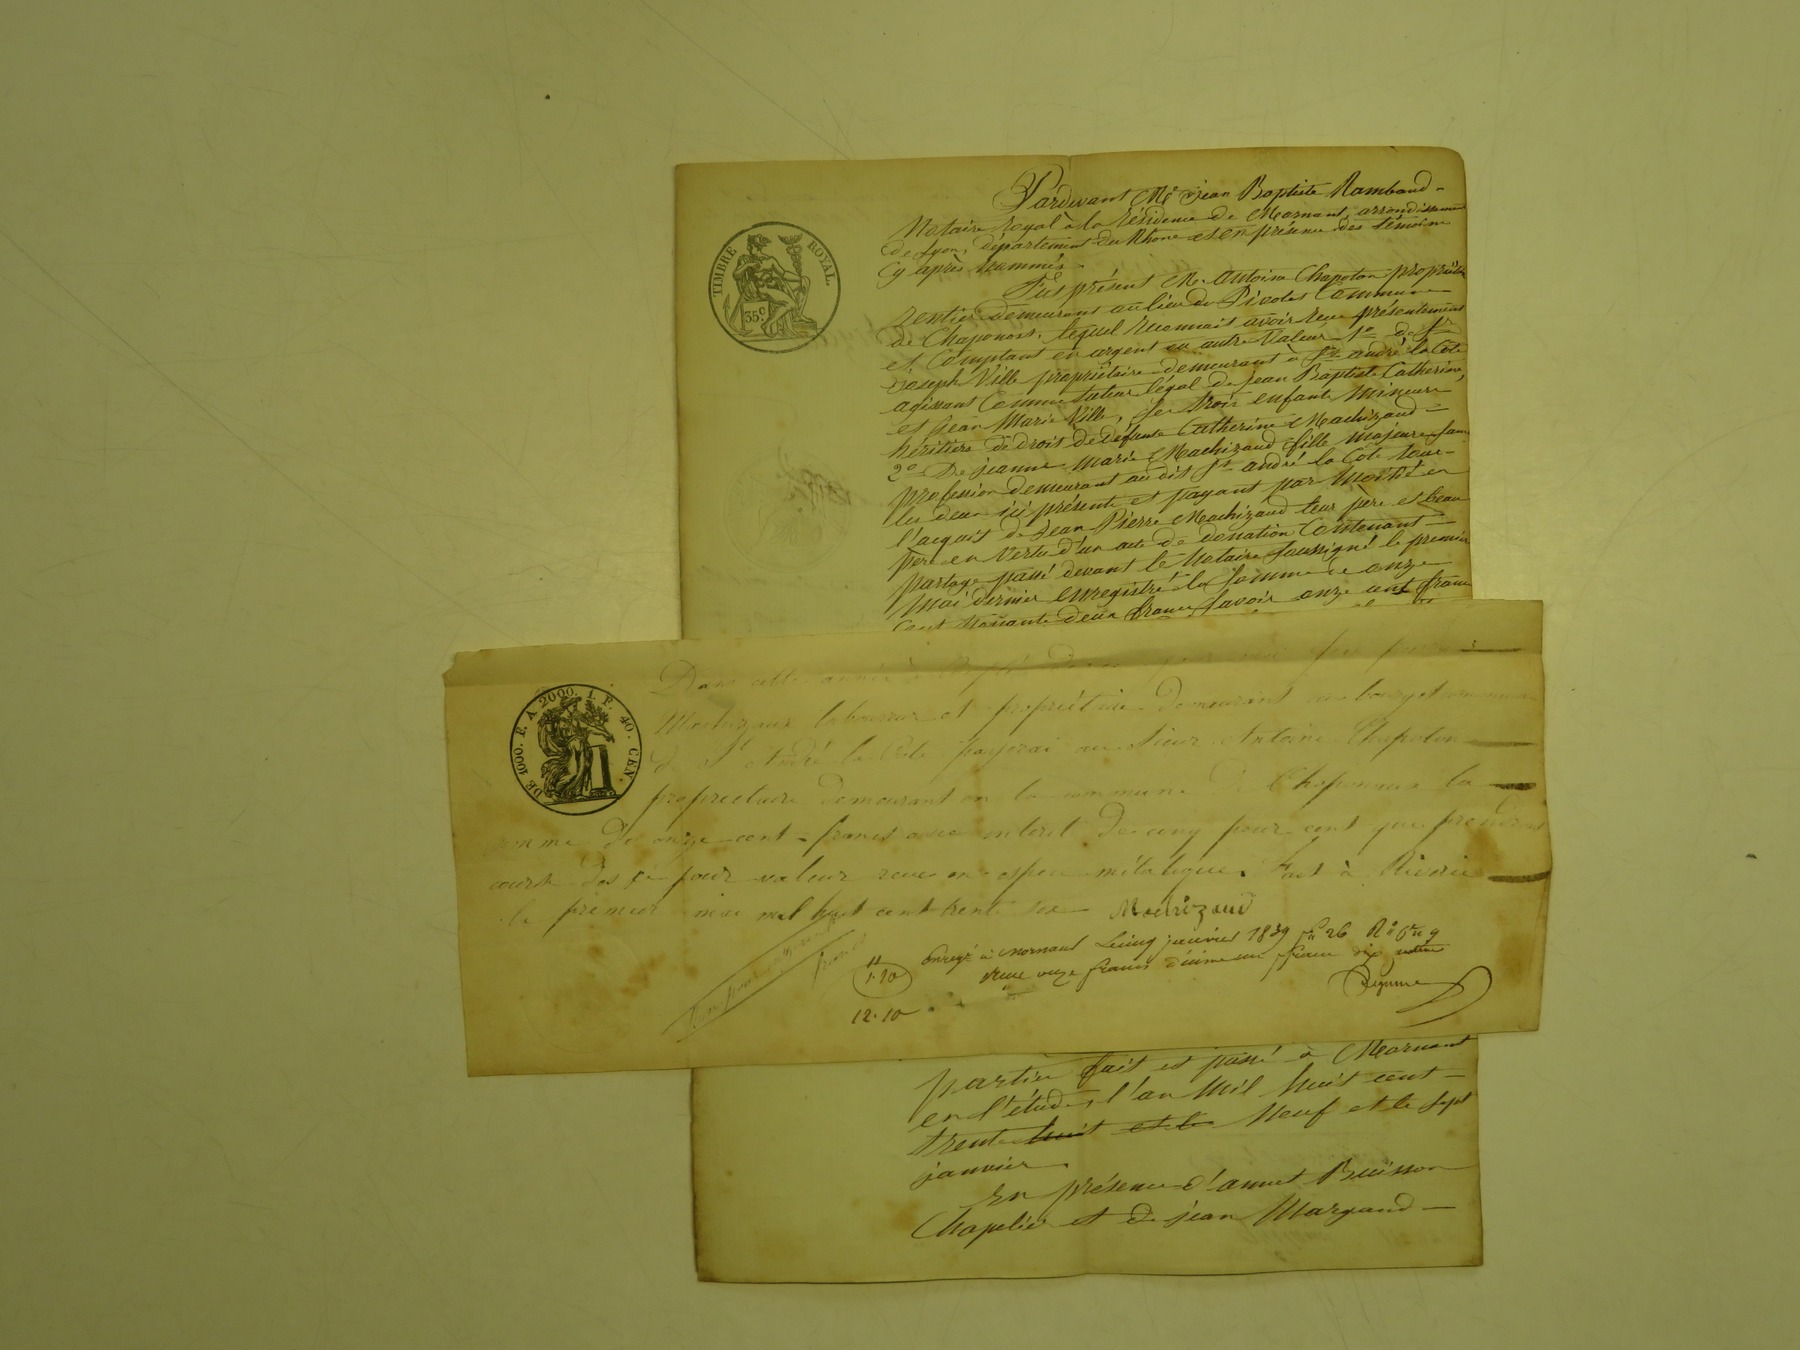 Pardevant Me Jean Baptiste Rambaud
Notaire royal à la résidence de Mornant, arrondissement
de Lyon, département du Rhône et en présence des témoins
Cy après nommés.
Fut présent M. Antoine Chapoton propriétaire
rentier demeurant au lieu de Commune
de Chaponost, lequel reconnait avoir reçu présentement
et Comptant en argent ou autre Valeur 1o de Sr
Joseph Ville propriétaire demeurant à St andré la Côte
agissant Comme tuteur légal de jean Baptiste Catherine,
et Jean Marie Ville, ses trois enfants Mineurs
héritiers de droit de défunte Catherine Machizaud =
2o De jeanne Marie Machizaud fille majeure sans
profession demeurant au dit St andré la Côte tous
les deux ici présents et payant par Moitié en
l'acquit de Jean Pierre Machizaud leur père et beau
père en Vertu d'un acte de donation Contenant
partage passé devant le Notaire soussigné le premier
mai dernier enregistré la somme de onze
Cent soixante deux francs savoir onze cent francs
TIMBRE ROYAL
35 c.
DE 1000. F. A 2000. 1. F. 40. CEN.
Dans cette année
Machizaud laboureur et propriétaire demeurant au bourg et commune
de St André la Côte payerai au sieur Antoine Chapoton
propriétaire demeurant en la commune de Chaponnau la
somme de onze cent francs avec interêt de cinq pour cent que prendront
course dès ce jour valeur reçue en espece métalique. Fait à Riverie
le premier mai mil huit cent trente six Machizaud
Bon pour
francs
11
1.10
12.10
Enregé à Mornant le cinq janvier 1839 fo 26 Ro
reçu onze francs décime un franc dix
partie fait et passé à Mornant
en l'étude, l'an Mil huit cent
trente huit et le Neuf et le sept
janvier.
En présence d'annet Buisson
Chapelier et de jean Margaud